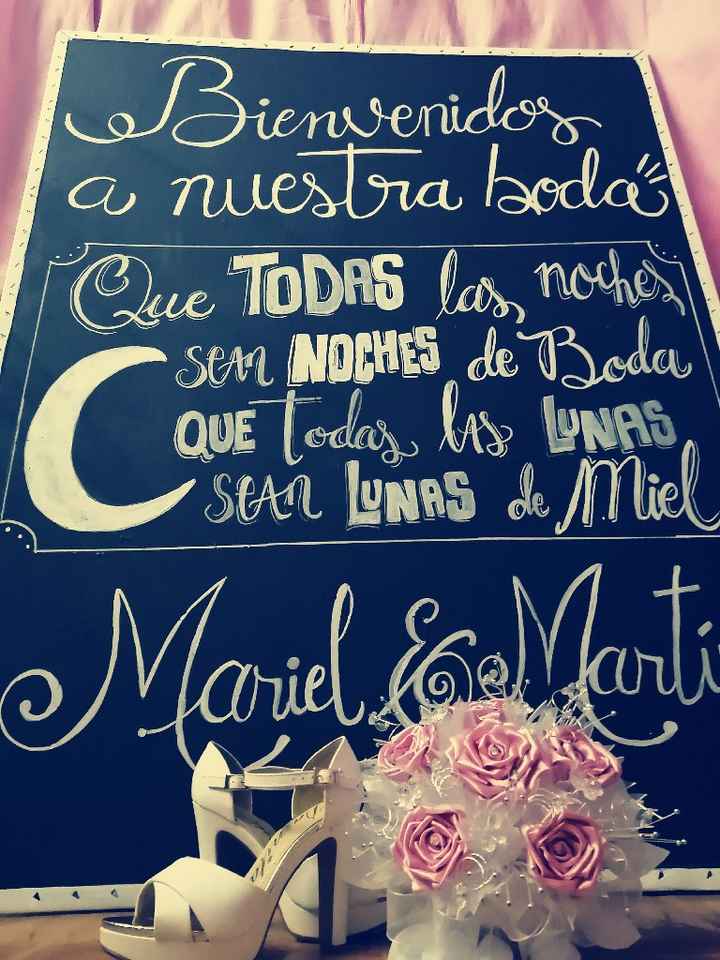 Bienvenidos
a nuestra boda
Que TODAS las noches
sean NOCHES de Boda
QUE todas las LUNAS
sean LUNAS de Miel
Mariel & Martí